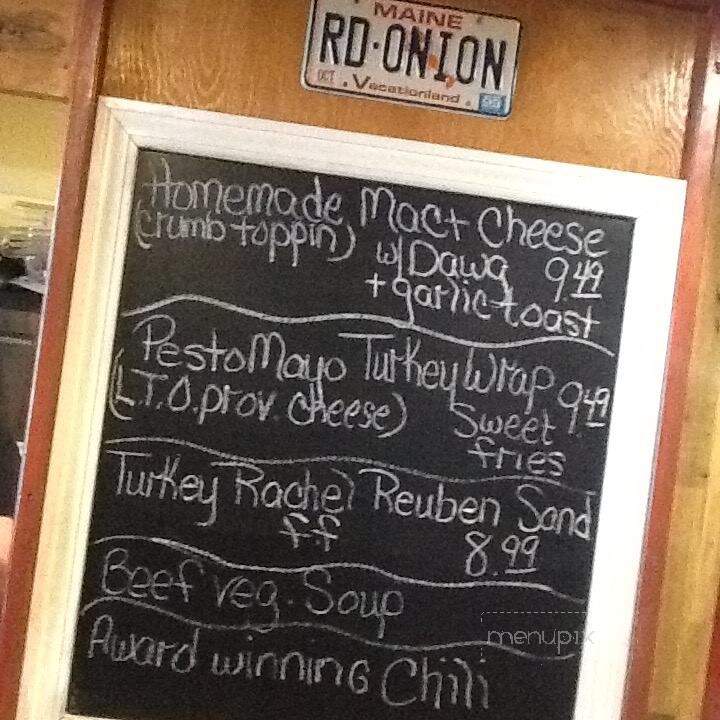 MAINE
RD·ONION
OCT . Vacationland . 99
Homemade Mac + Cheese
(crumb toppin) w/ Dawg 9.49
+ garlic toast
Pesto Mayo Turkey Wrap 9.49
(L.T.O. prov. cheese) Sweet
fries
Turkey Rachel Reuben Sand
ff 8.99
Beef veg. Soup
Award winning Chili
menupix